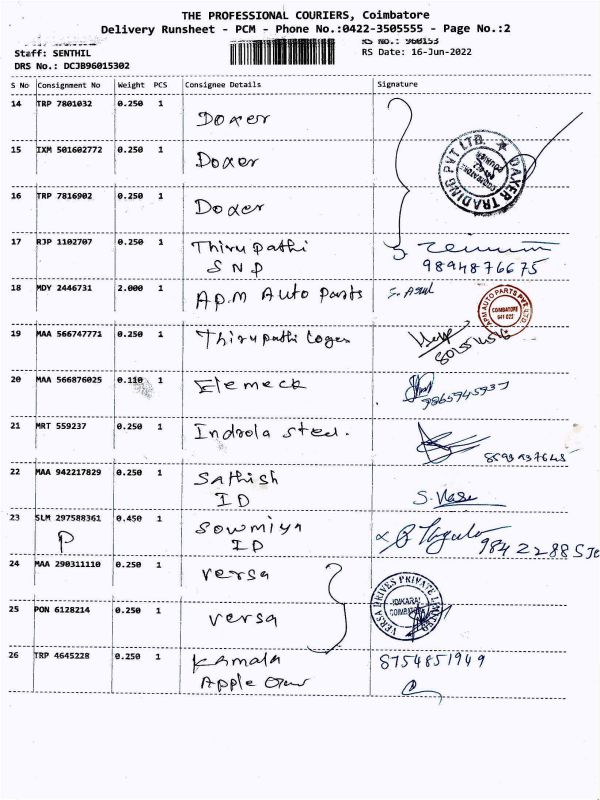 THE PROFESSIONAL COURIERS, Coimbatore
Delivery Runsheet - PCM - Phone No.:0422-3505555 - Page No.:2
Staff: SENTHIL
RS No.: 960153
DRS No.: DCJB96015302
RS Date: 16-Jun-2022
S No Consignment No Weight PCS Consignee Details Signature
14 TRP 7801032 0.250 1 Doxer
15 IXM 501602772 0.250 1 Doxer
16 TRP 7816902 0.250 1 Doxer
DAXER TRADING PVT LTD.
17 RJP 1102707 0.250 1 Thirupathi
SNP 9894876675
18 MDY 2446731 2.000 1 A.P.M Auto Parts
APM AUTO PARTS PVT LTD
COIMBATORE
641 022
19 MAA 566747771 0.250 1 Thirupathi
20 MAA 566876025 0.110 1 Elemeck
21 MRT 559237 0.250 1 Indrola steel.
22 MAA 942217829 0.250 1 Sathish
ID
23 SLM 297588361 0.450 1 Sowmiya
P ID
24 MAA 290311110 0.250 1 versa
VERSA DRIVES PRIVATE LIMITED
25 PON 6128214 0.250 1 versa
26 TRP 4645228 0.250 1 Kamala 8754851949
Apple